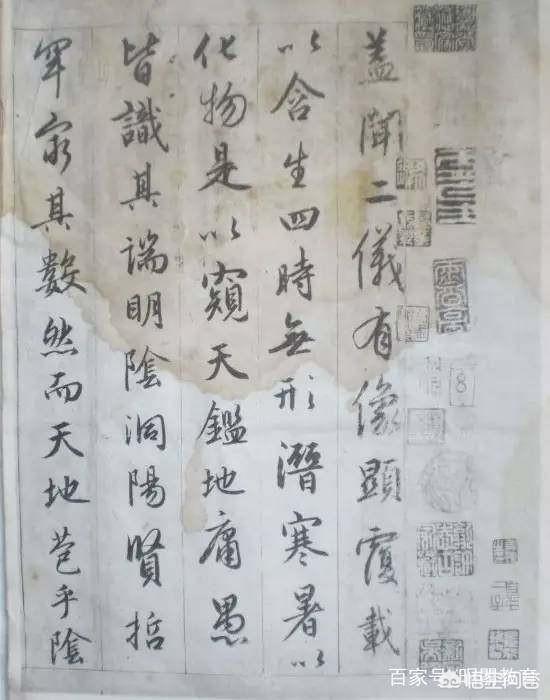 蓋聞二儀有像顯覆載
以含生四時無形潛寒暑以
化物是以窺天鑑地庸愚
皆識其端明陰洞陽賢哲
罕窮其數然而天地苞乎陰
百家号